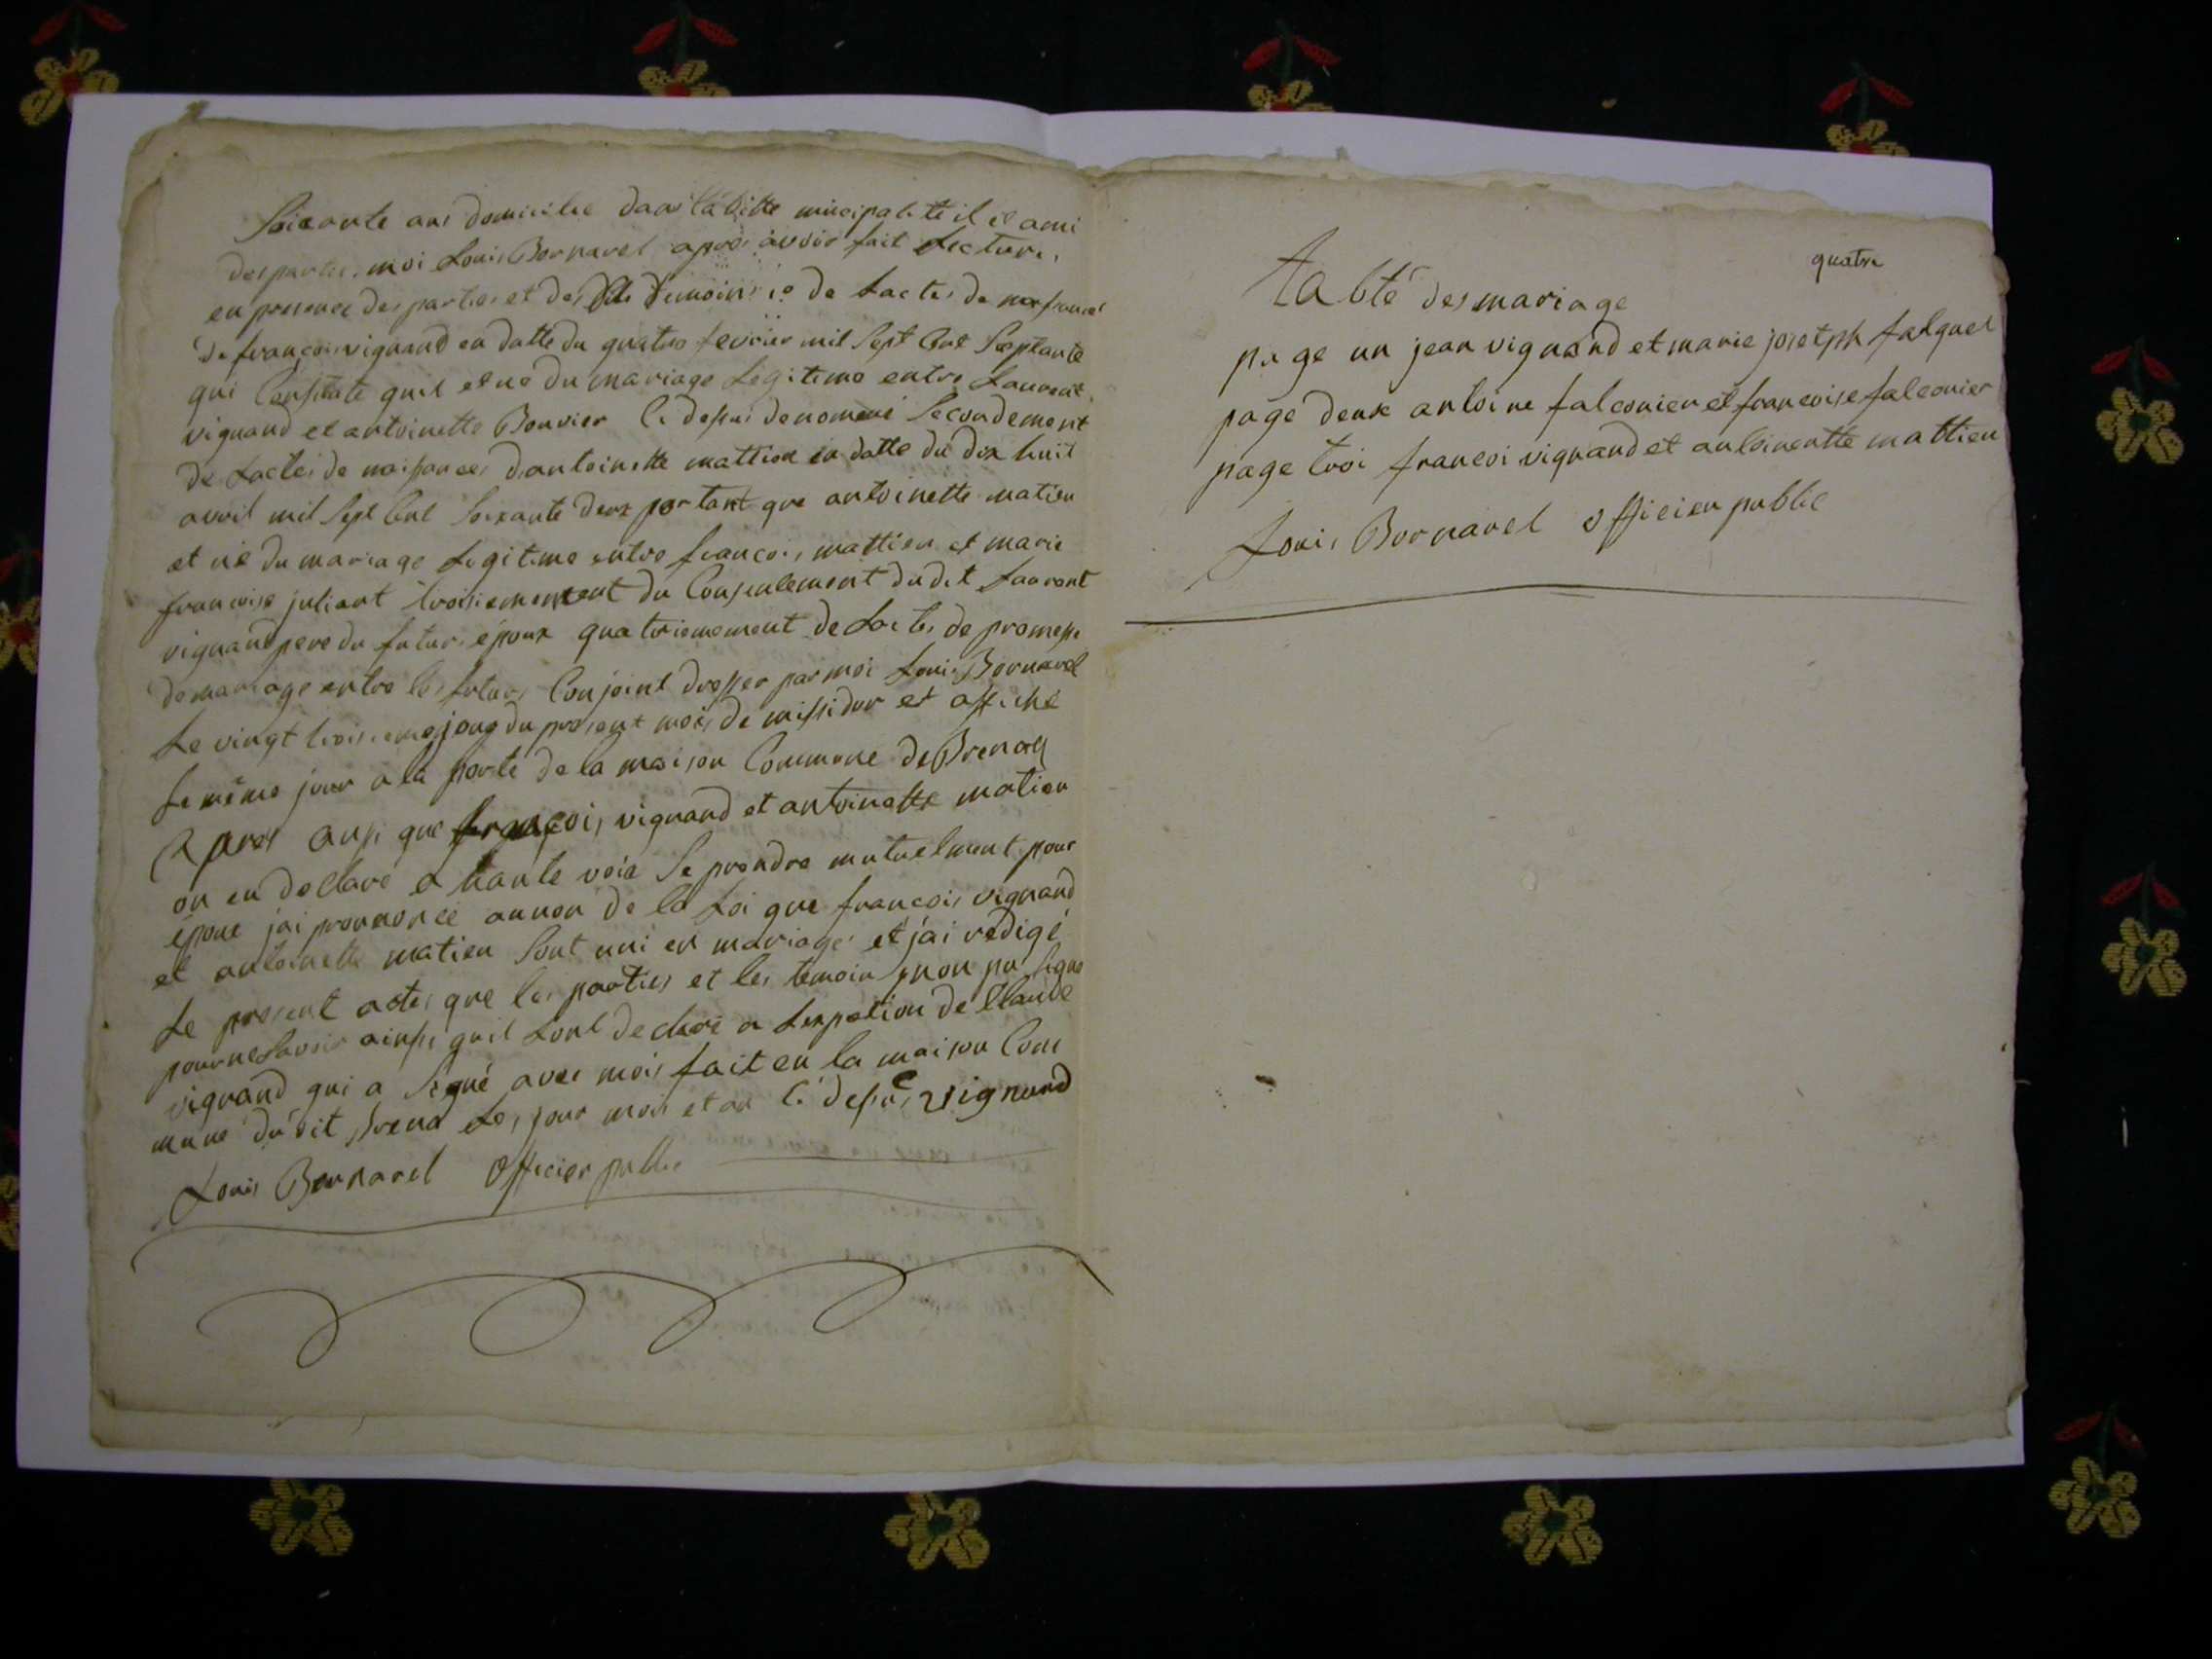 Soixante ans domicilie dans la ditte municipalite il es ami
des parties. moi Louis Bornarel apres avoir fait Lecture,
en presence des parties et des dits temoins 1o de Lactes de naisances
de francois vignand en datte du quatre fevrier mil Sept Cent Septante
qui Constate quil est ne du mariage Legitime entre Laurent
vignand et antoinette Bouvier Ci desus denomené Secondement
de Lactes de naisances dantoinette mattieu en datte du dix huit
avril mil Sept Cent Soixante deux portant que antoinette matieu
et né du mariage Legitime entre francois mattieu et marie
francoise julient troisiemement du Consentement dudit Laurent
vignand pere du futur époux quatriemement de Lactes de promesse
de mariage entre les futurs Conjoint dresser par moi Louis Bornarel
Le vingt troisieme joug du present mois de missidor et affiché
Le même jour a la porte de la maison Commune de Brenas
Apres ausi que francois vignand et antoinette matieu
on eu declaré a haute voix Se prendre mutuelment pour
époux jai prononcé aunon de la Loi que francois vignand
et antoinette matieu Sont uni en mariage et jai redigé
Le present actes que les parties et les temoin non pu signe
pour ne Savoir ainsi quil Lont declaré a Lexpetion de Claude
vignand qui a Signé avec moi fait en la maison Com
mune dudit Brenas Les jour mois et an Ci desus vignand
Louis Bornarel Officier public
quatre
table des mariage
page un jean vignand et marie josetph falquet
page deux antoine falconier et francoise falconier
page troi francoi vignand et antoinentte mattieu
Louis Bornarel officier public